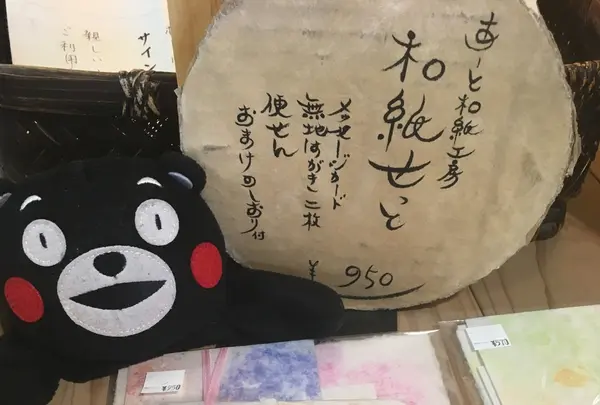 あーと和紙工房
和紙せっと
メッセージカード
無地はがき二枚
便せん
おまけのしおり付
¥950
サイン
親しい
ご利用
¥550
¥570